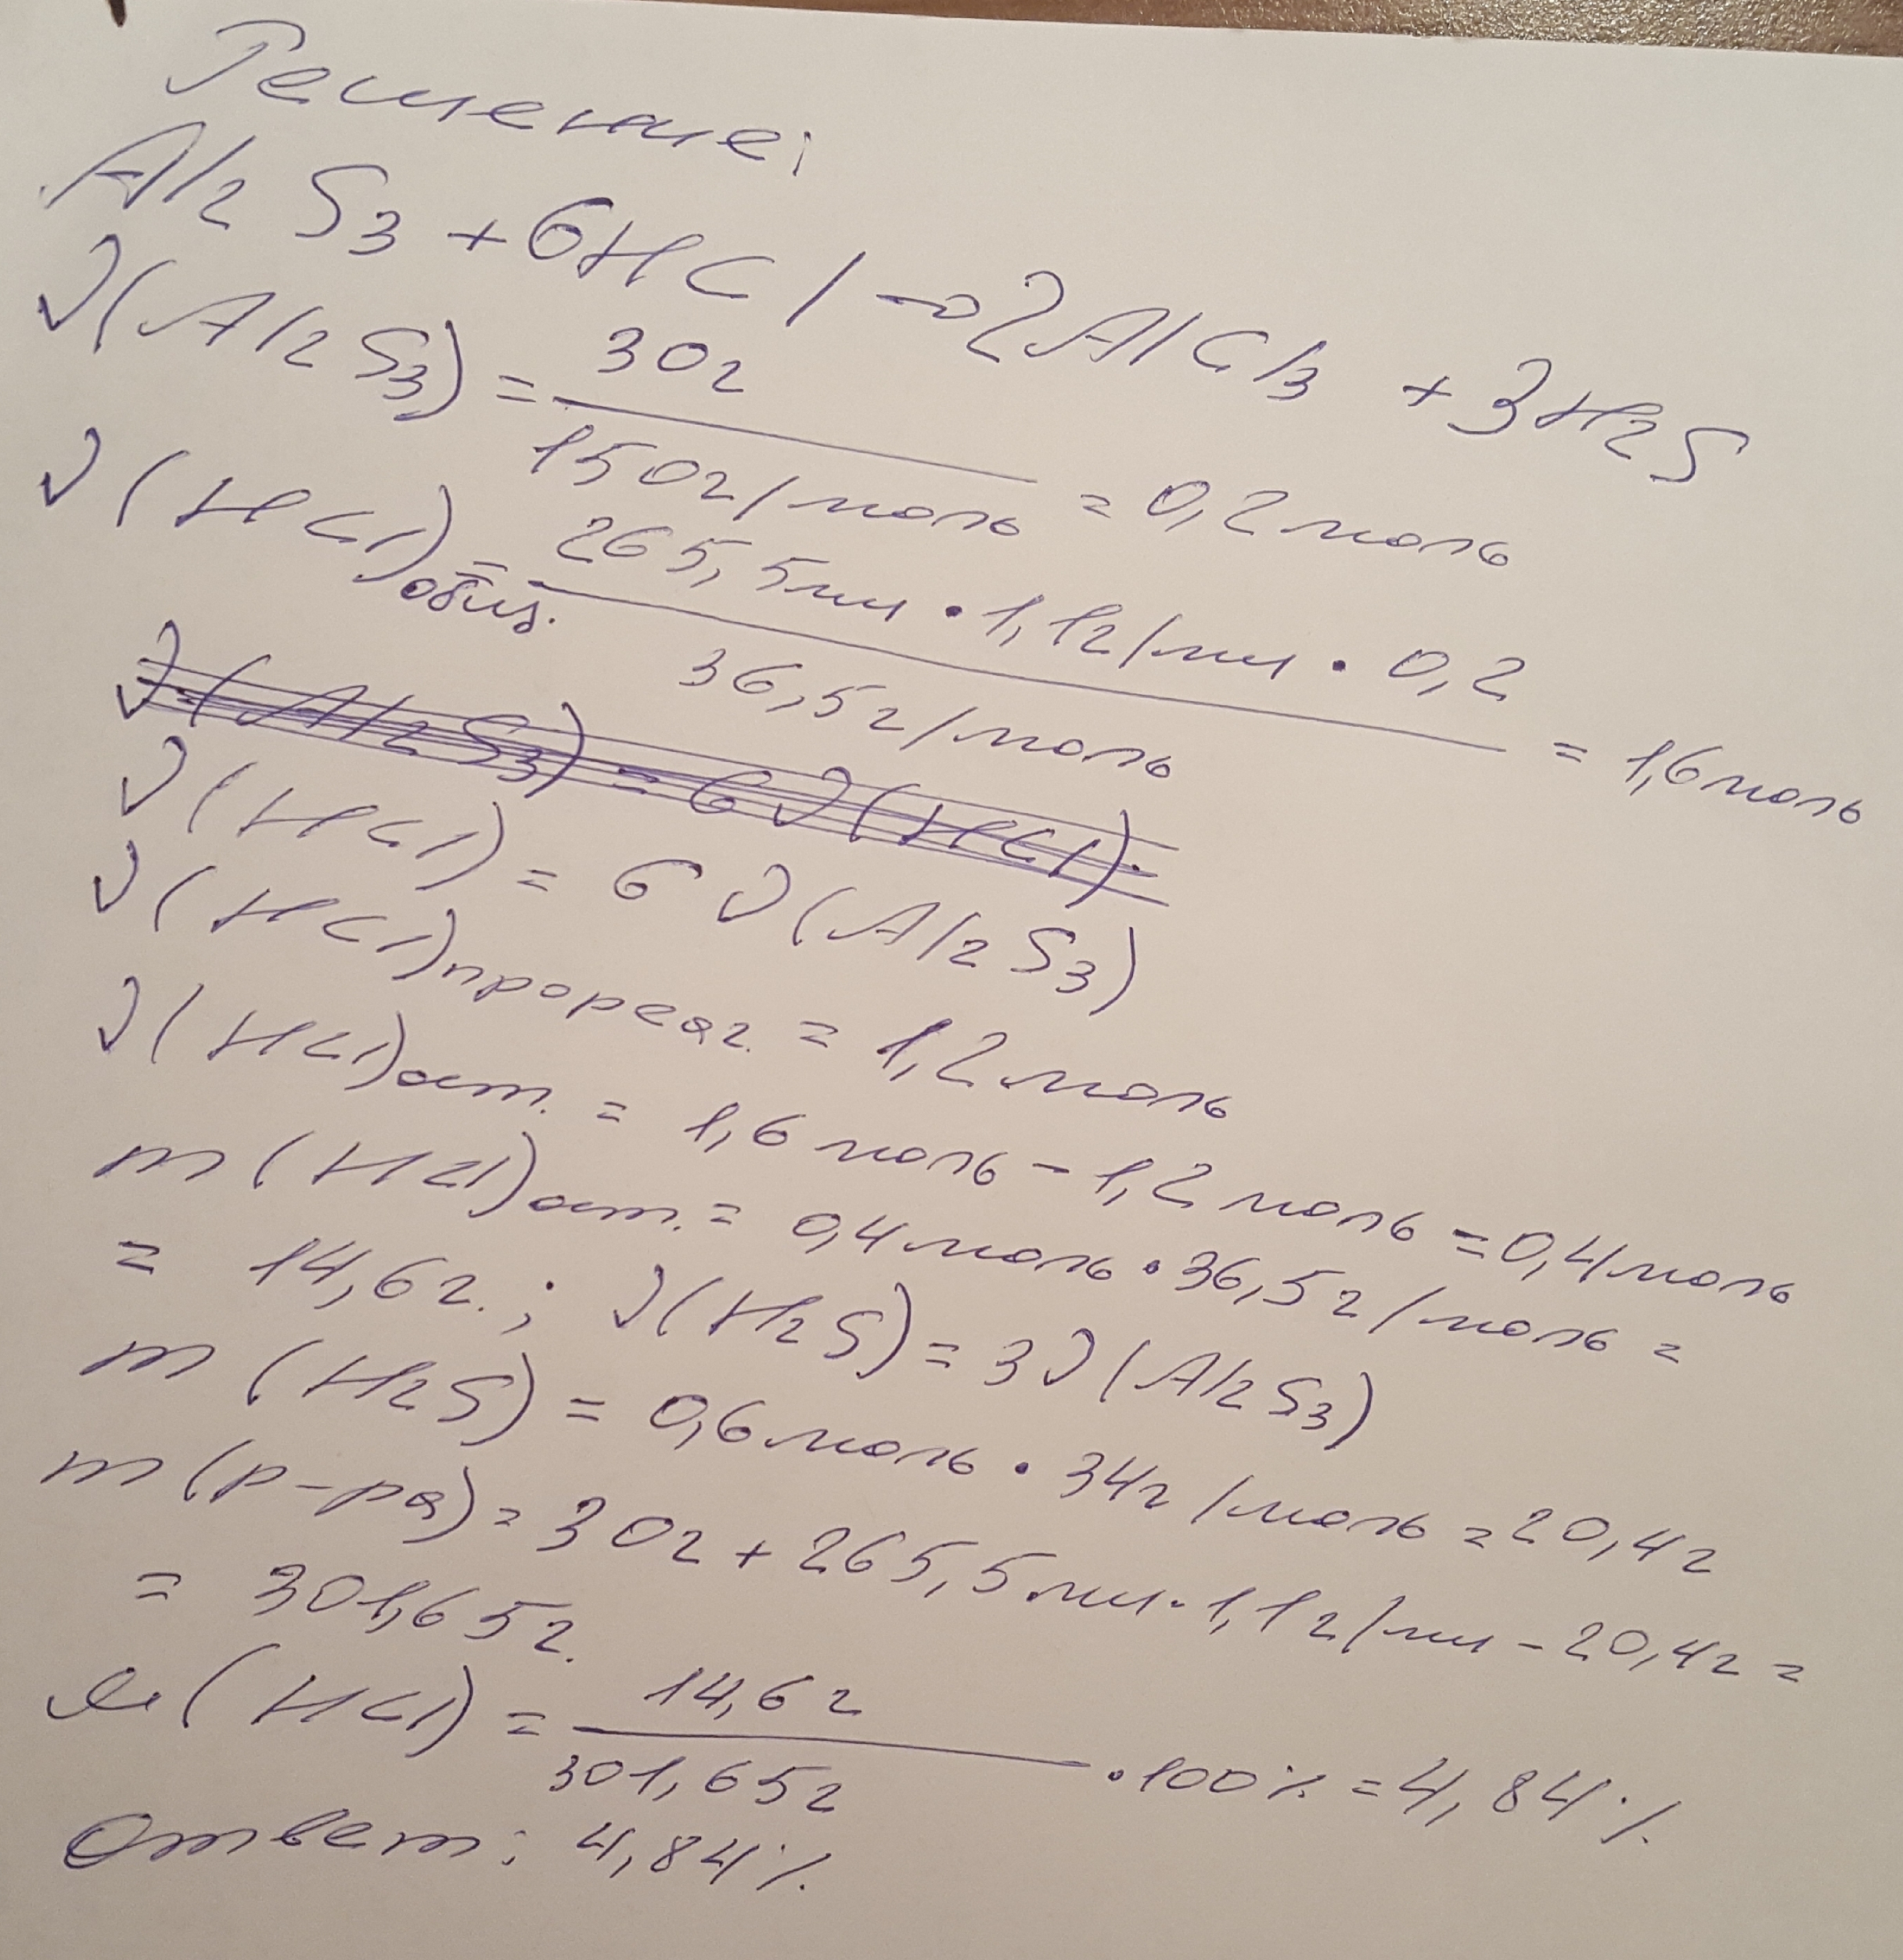 Решение:
Al2S3 + 6HCl → 2AlCl3 + 3H2S
ν(Al2S3) = 30г / 150г/моль = 0,2моль
ν(HCl)общ. = 265,5мл · 1,1г/мл · 0,2 / 36,5г/моль = 1,6моль
ν(Al2S3) = 6ν(HCl).
ν(HCl) = 6ν(Al2S3)
ν(HCl)прореаг. = 1,2моль
ν(HCl)ост. = 1,6моль - 1,2моль = 0,4моль
m(HCl)ост. = 0,4моль · 36,5г/моль =
= 14,6г.; ν(H2S) = 3ν(Al2S3)
m(H2S) = 0,6моль · 34г/моль = 20,4г
m(р-ра) = 30г + 265,5мл · 1,1г/мл - 20,4г =
= 301,65г.
ω(HCl) = 14,6г / 301,65г · 100% = 4,84%
Ответ: 4,84%